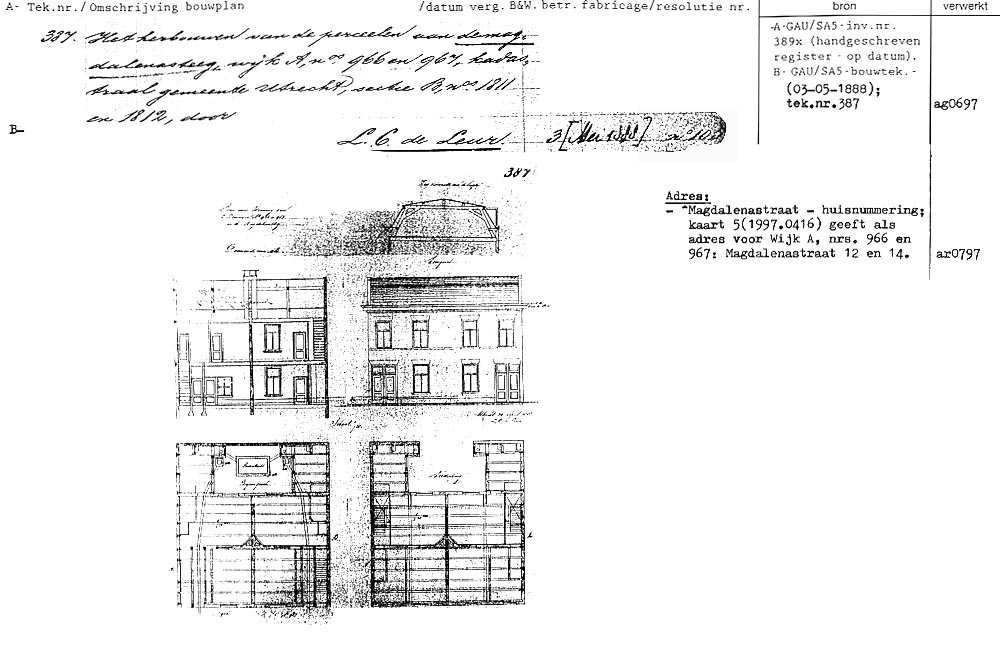 A- Tek.nr./Omschrijving bouwplan /datum verg. B&W. betr. fabricage/resolutie nr. bron verwerkt
387. Het herbouwen van de perceelen aan de mag-
dalenasteeg, wijk A, nos 966 en 967, kadas-
traal gemeente Utrecht, sectie B, nos 1811
en 1812, door
B-
L. C. de Leur. 3 [Mei 1888] no
-A-GAU/SA5-inv.nr.
389x (handgeschreven
register - op datum).
B- GAU/SA5-bouwtek.-
(03-05-1888);
tek.nr.387 ag0697
387
Adres:
- *Magdalenastraat - huisnummering;
kaart 5(1997.0416) geeft als
adres voor Wijk A, nrs. 966 en
967: Magdalenastraat 12 en 14. ar0797